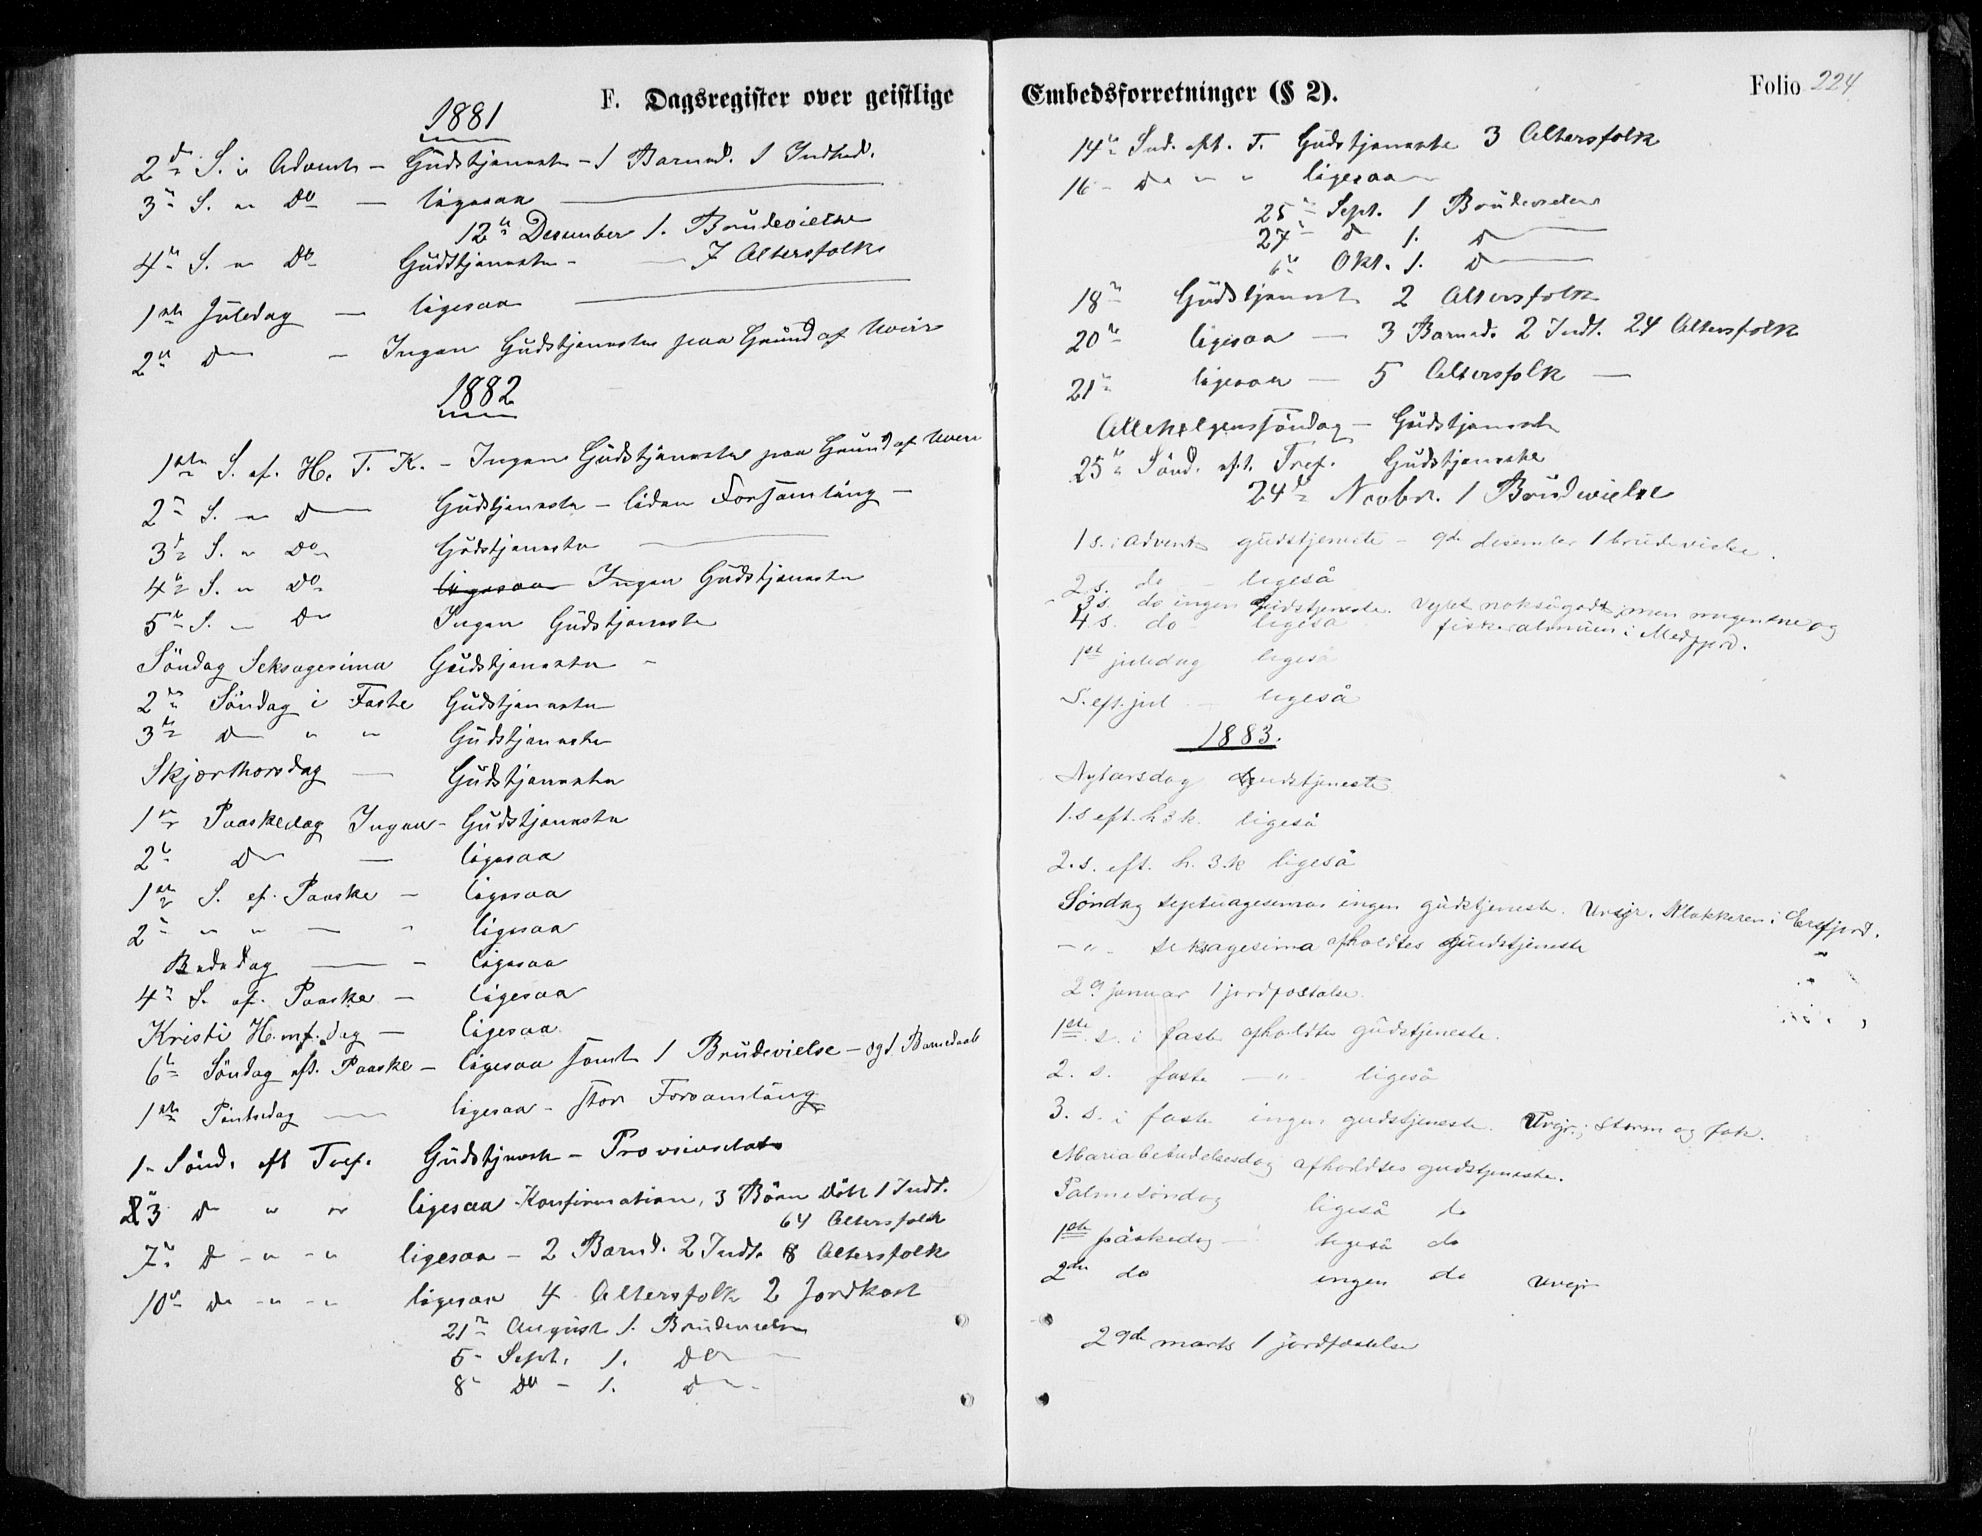 F. Dagsregister over geistlige
1881
2d S. i Advent – Gudstjeneste – 1 Barned. 1 Indled.
3die S. " Do – ligesaa
12te Desember 1. Brudevielse
4de S. " Do Gudstjeneste – 7 Altersfolk
1ste Juledag – ligesaa
2den Do – Ingen Gudstjeneste paa Grund af Uveir
1882
1ste S. ef. H. T. K. – Ingen Gudstjeneste paa Grund af Uveir
2den S. " Do Gudstjeneste – liden Forsamling –
3die S. " Do Gudstjeneste
4de S. " Do ligesaa Ingen Gudstjeneste
5te S. " Do Ingen Gudstjeneste
Söndag Seksagesima Gudstjeneste –
2den Söndag i Faste Gudstjeneste
3die Do " " Gudstjeneste
Skjærthorsdag – Gudstjeneste
1ste Paaskedag Ingen – Gudstjeneste
2den Do – ligesaa
1ste S. ef. Paaske – ligesaa
2den " " – " ligesaa
Bededag – – ligesaa
4de S. ef. Paaske – ligesaa
Kristi H.mf.dag – ligesaa
6te Söndag eft. Paaske – ligesaa samt 1 Brudevielse – og 1 Barnedaab
1ste Pintsedag – ligesaa – stor Forsamling
1– Sönd. eft Tref. Gudstjenest – Provsivisitats
3 Do " " ligesaa Konfirmation, 3 Börn Döbt 1 Indl.
64 Altersfolk
7de D – " – " ligesaa – 2 Barnd. 2 Indl. 8 Altersfolk
10de Do – " – " ligesaa 4 Altersfolk 2 Jordkast
21de August 1. Brudevielse
5– Sept. 1. Do
8– Do – 1. Do
Embedsforretninger (§ 2).
Folio 224
14de Snd. eft. T. Gudstjeneste 3 Altersfolk
16– Do " " ligesaa
25de Sept. 1 Brudevielse
27– D 1. D
6te Okt. 1. D
18de Gudstjenest 2 Altersfolk
20de ligesaa – 3 Barned. 2 Indl. 24 Altersfolk
21de ligesaa – 5 Altersfolk –
Allehelgenssöndag – Gudstjeneste
25de Sönd. eft. Tref. Gudstjeneste
24de Novbr. 1 Brudevielse
1 s. i advent gudstjeneste – 9de desember 1 brudevielse.
2 s. do – ligeså
3 s. do ingen Gudstjeneste. Vejret noksågodt, men mugentne og
4 s. do – ligeså fiskeralmuen i Medfjord.
1ste juledag ligeså
S. eft. jul – ligeså
1883.
Nytårsdag Gudstjeneste
1. s eft. h 3 k. ligeså
2. s. eft. h. 3. k ligeså
Søndag septuagesima ingen gudstjeneste. Uvejr. Klokkeren i Ersfjord.
– " – seksagesima afholdtes gudstjeneste "
29 januar 1 jordfæstelse.
1ste s. i faste afholdtes gudstjeneste.
2. s. faste – " – ligeså
3. s. i faste ingen gudstjeneste. Uvejr; storm og fok.
Maria bebudelsesdag afholdtes gudstjeneste.
Palmesøndag ligeså do
1ste påskedag – ligeså do
2den do ingen do Uvejr
29de marts 1 jordfæstelse